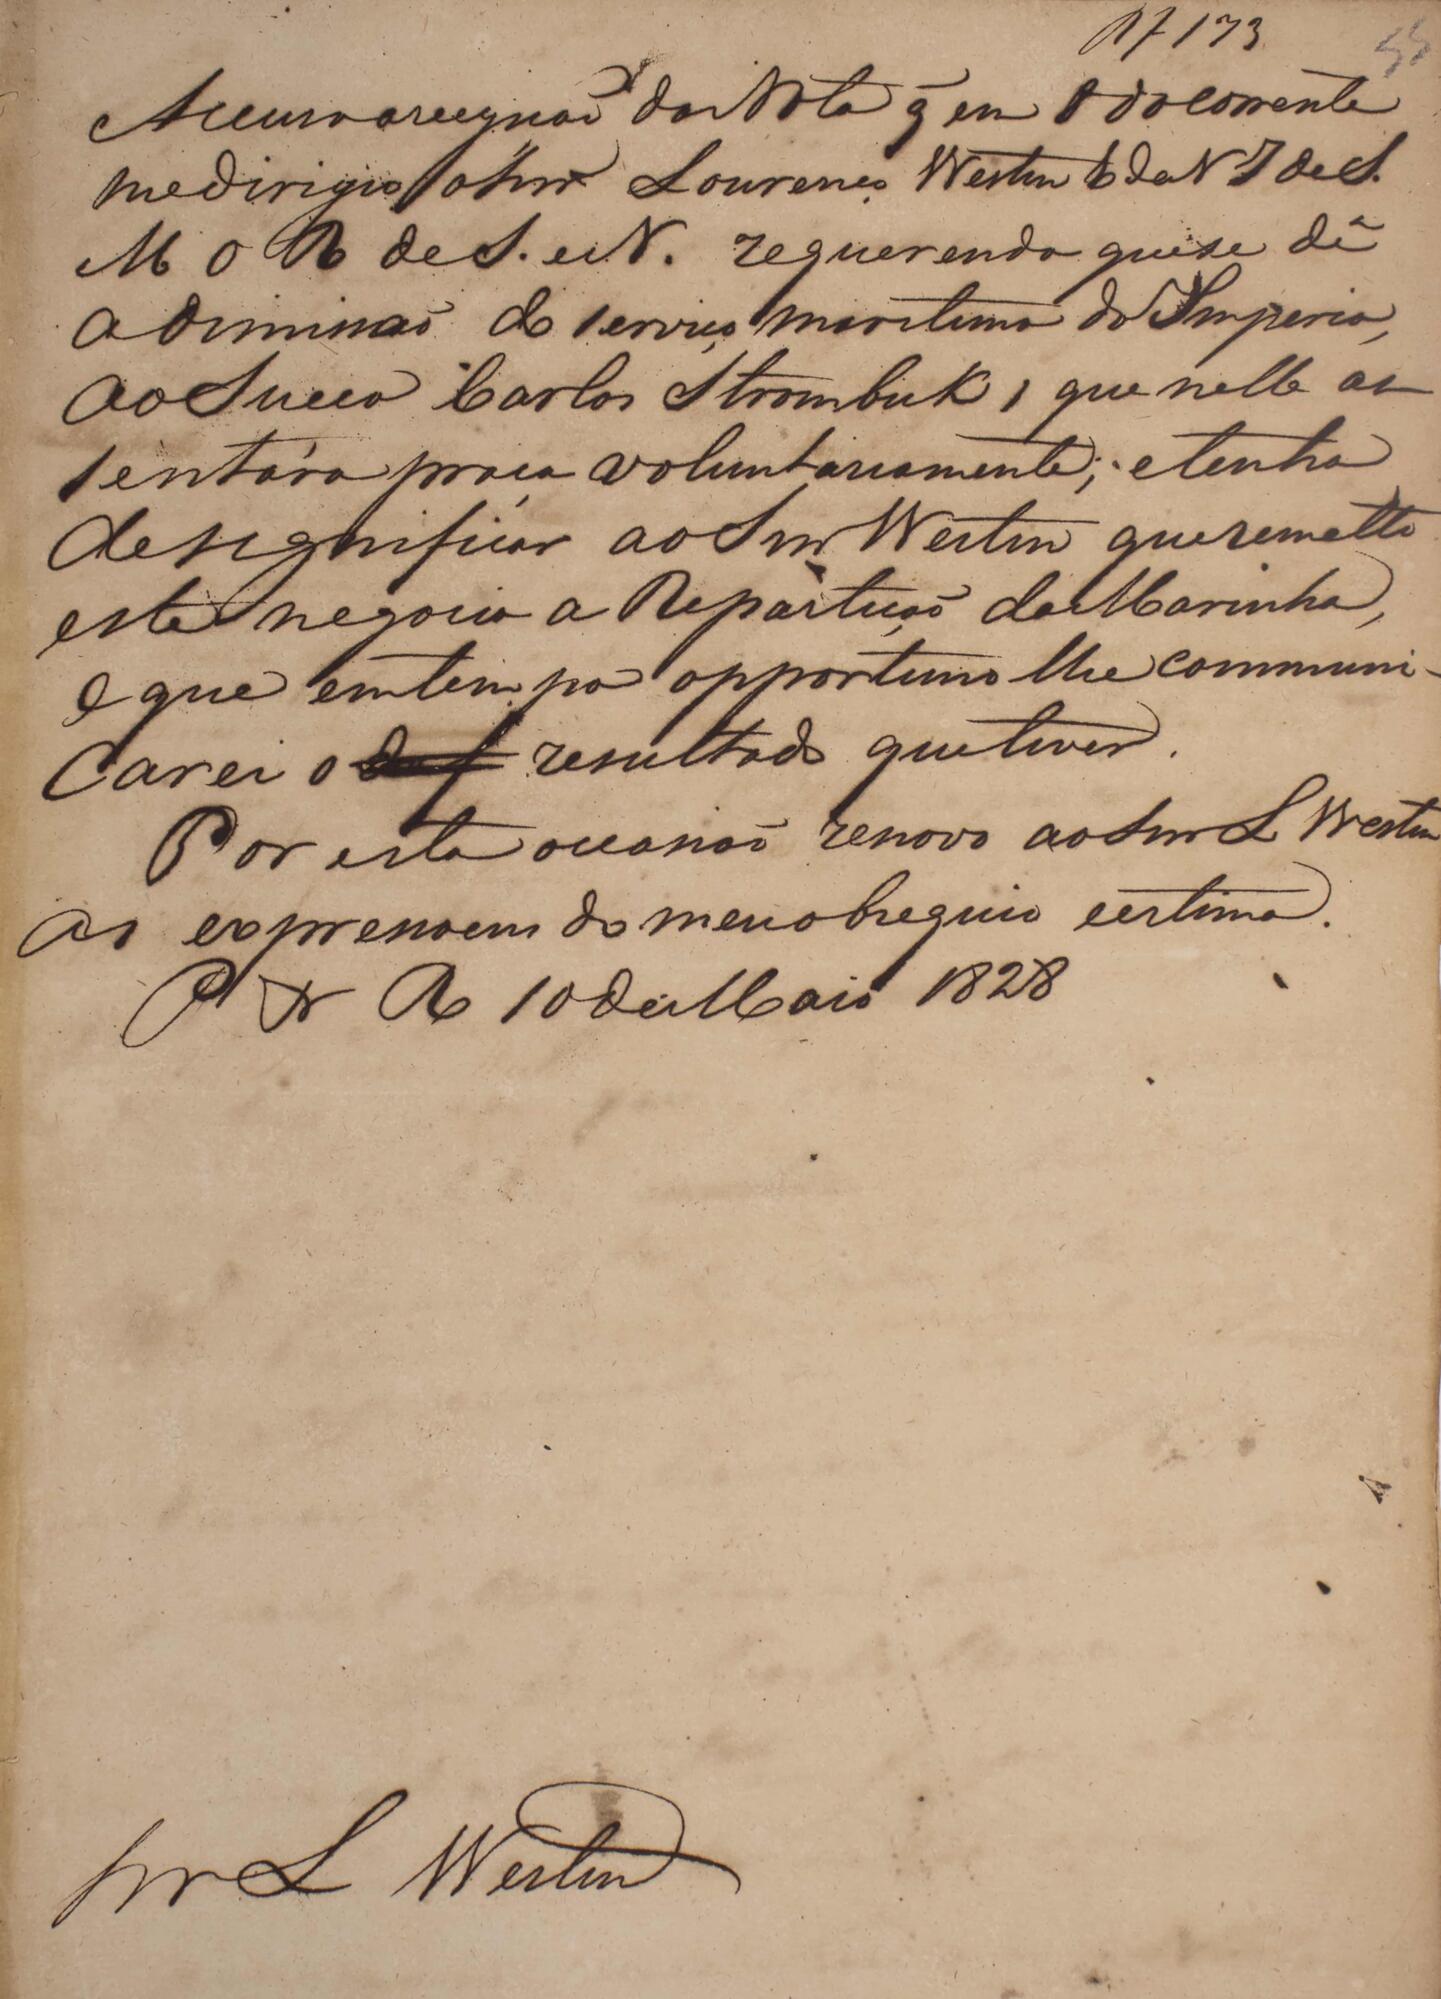 173
55
Accuso a recepçaõ da Nota q̃ em 8 do corrente
me dirigio o Snr Lourenço Westin da N de S.
M O R de S. e N. requerendo que se dê
a dimissaõ do serviço maritimo do Imperio,
ao Sueco Carlos Strombuk, que nelle as
sentára praça voluntariamente; e tenho
de significar ao Snr Westin que remetto
este negocio a Repartiçaõ da Marinha,
e que em tempo opportuno lhe communi-
carei o resultado que tiver.
Por esta occasiaõ renovo ao Snr L Westin
as expressoens do meu obsequio e estima.
P R 10 de Maio 1828
Snr L Westin